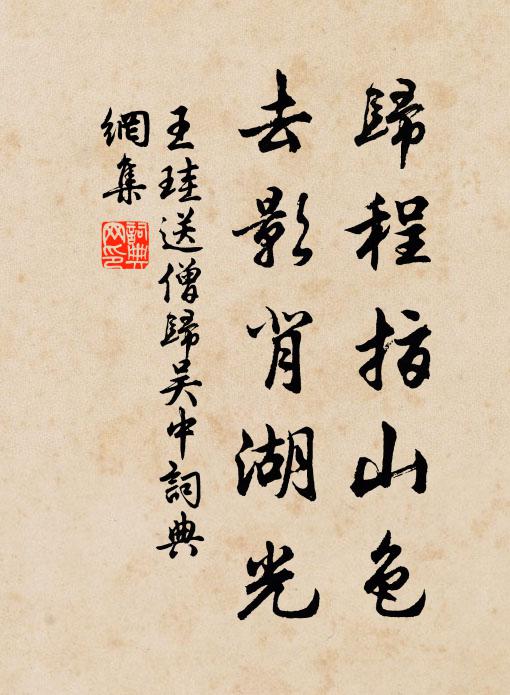 歸程指山色
去影背湖光
王珪送僧歸吴中詞典
網集
詞典
网印